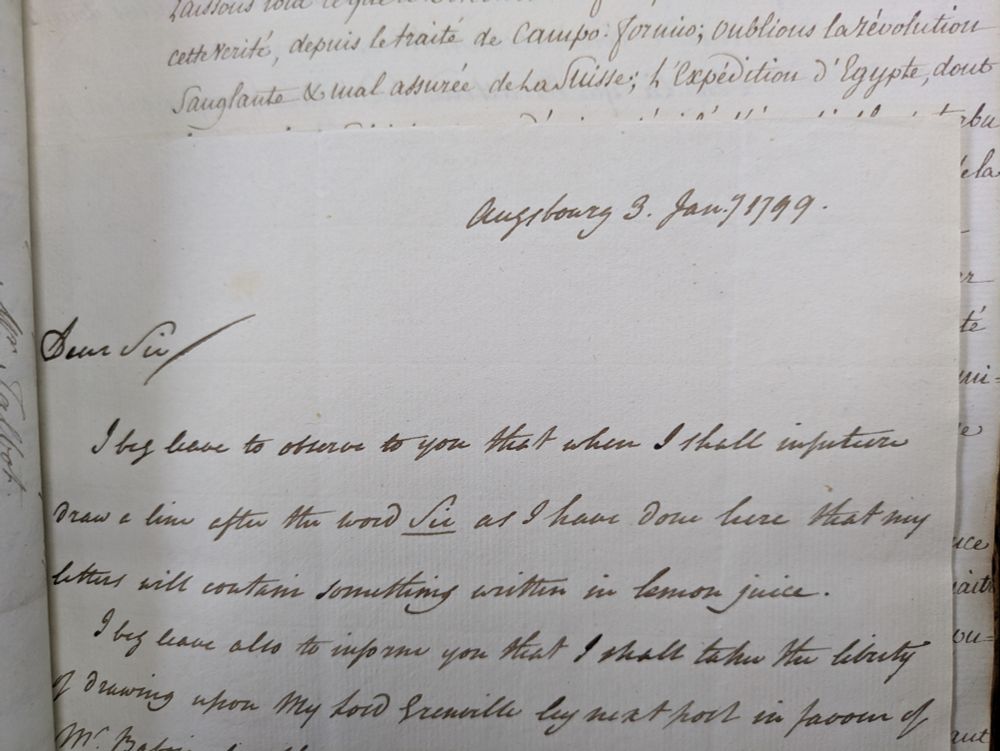 cette Verité, depuis le traité de Campo-formio; oublions la révolution
Sanglante & mal assurée de La Suisse; L'Expédition d'Egypte, dont
Augsbourg 3. Jan.y 1799.
Dear Sir/
I beg leave to observe to you that when I shall in future
draw a line after the word Sir as I have done here that my
letters will contain something written in lemon juice.
I beg leave also to inform you that I shall take the liberty
of drawing upon My Lord Grenville by next post in favour of
Mr.
Talbot.